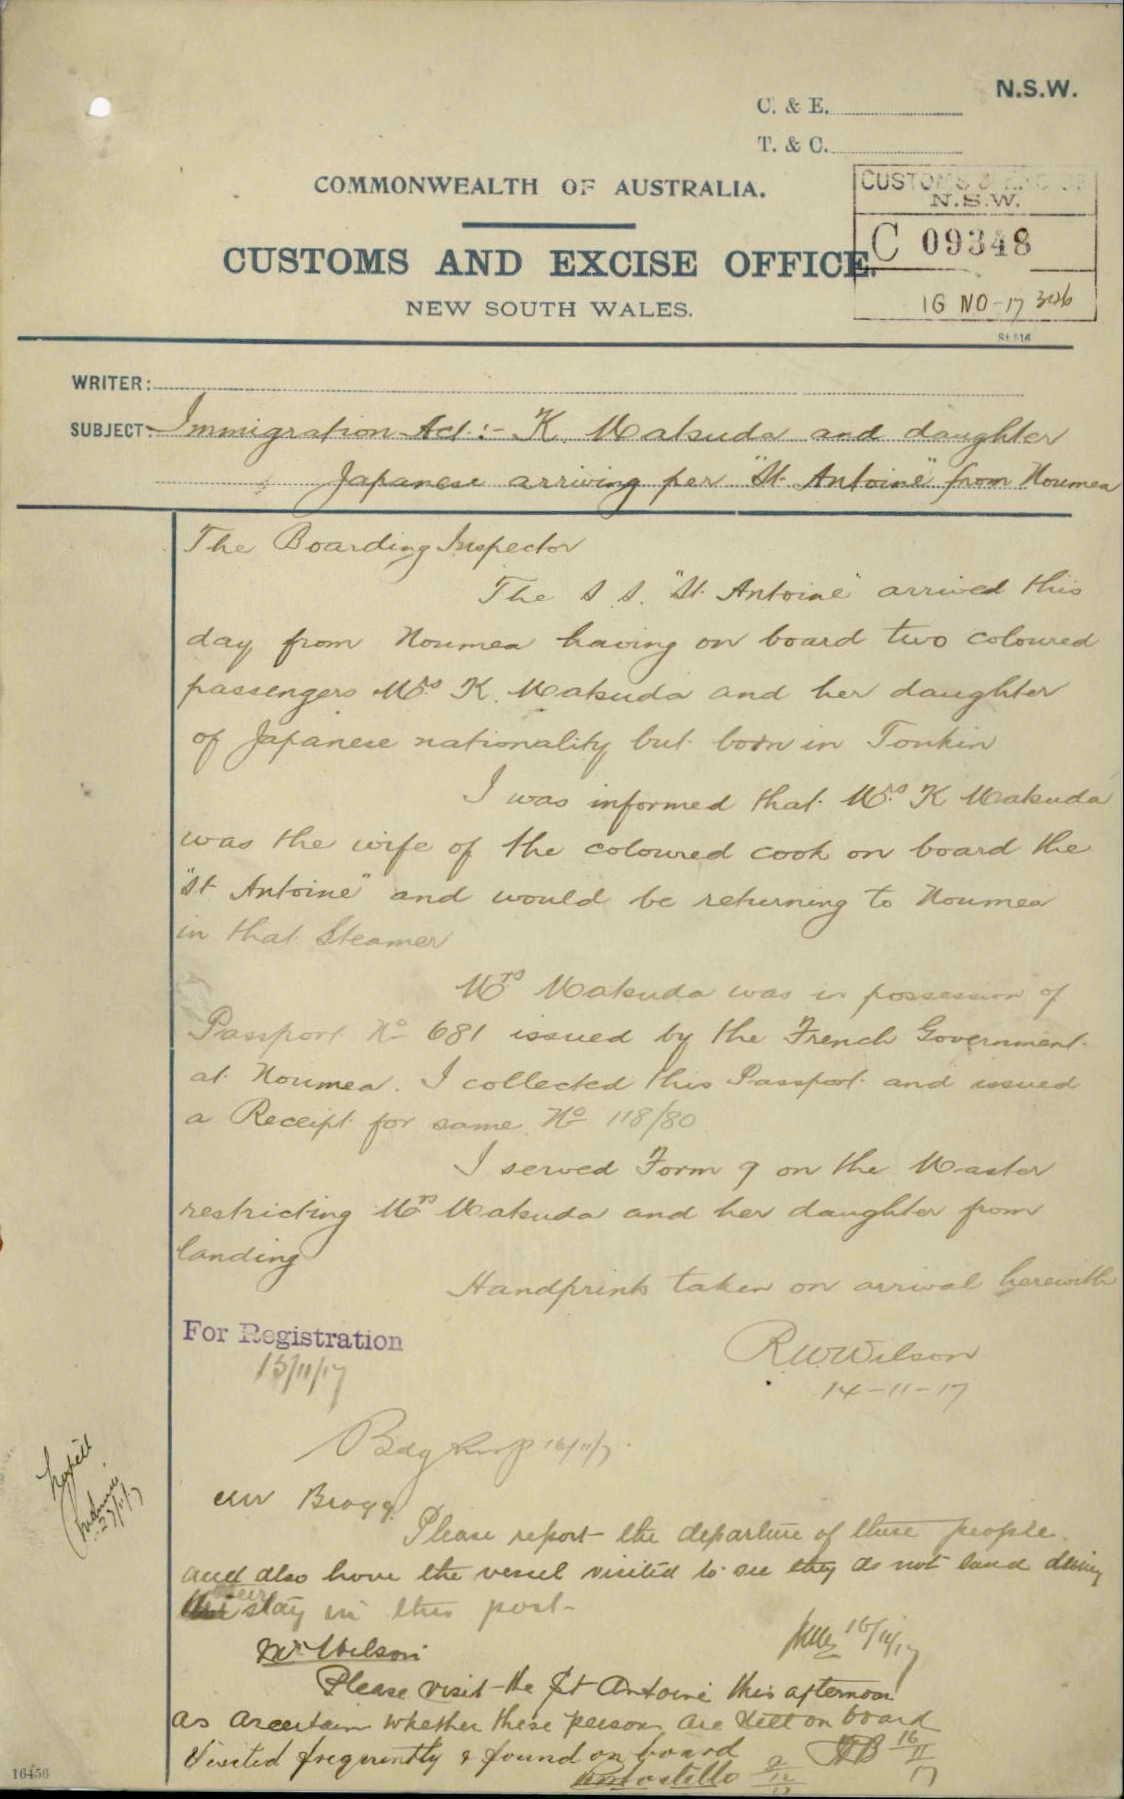 N.S.W.
C. & E.
T. & C.
COMMONWEALTH OF AUSTRALIA.
CUSTOMS & EXCISE
N.S.W.
C 09348
16 NO -17
CUSTOMS AND EXCISE OFFICE.
NEW SOUTH WALES.
WRITER:
SUBJECT: Immigration Act :- K. Makuda and daughter
Japanese arriving per "St. Antoine" from Noumea
The Boarding Inspector
The S. S. "St. Antoine" arrived this
day from Noumea having on board two coloured
passengers Mrs K. Makuda and her daughter
of Japanese nationality but born in Tonkin
I was informed that Mrs K Makuda
was the wife of the coloured cook on board the
"St Antoine" and would be returning to Noumea
in that Steamer
Mrs Makuda was in possession of
Passport No 681 issued by the French Government
at Noumea. I collected this Passport and issued
a Receipt for same No 118/80
I served Form 9 on the Master
restricting Mrs Makuda and her daughter from
landing
Handprints taken on arrival herewith
For Registration
15/11/17
R W Wilson
14-11-17
Bdg Insp 16/11/7
Mr Bragg
Please report the departure of these people
and also have the vessel visited to see they do not land during
their stay in this port
16/11/17
Mr Wilson
Please visit the St Antoine this afternoon
as ascertain whether these persons are still on board
16/11/17
Visited frequently & found on board
Costello 2/12/17
27/11/17
16456